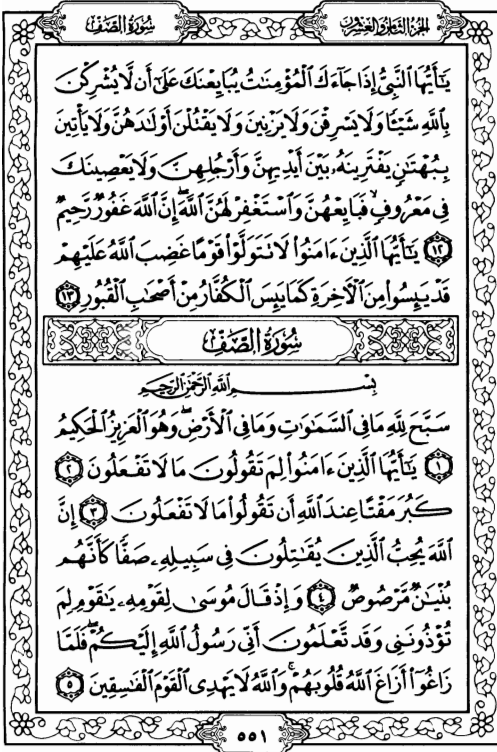 الجزء الثامن والعشرون
سورة الصف
يَٰٓأَيُّهَا ٱلنَّبِىُّ إِذَا جَآءَكَ ٱلْمُؤْمِنَٰتُ يُبَايِعْنَكَ عَلَىٰٓ أَن لَّا يُشْرِكْنَ
بِٱللَّهِ شَيْـًٔا وَلَا يَسْرِقْنَ وَلَا يَزْنِينَ وَلَا يَقْتُلْنَ أَوْلَٰدَهُنَّ وَلَا يَأْتِينَ
بِبُهْتَٰنٍ يَفْتَرِينَهُۥ بَيْنَ أَيْدِيهِنَّ وَأَرْجُلِهِنَّ وَلَا يَعْصِينَكَ
فِى مَعْرُوفٍ ۙ فَبَايِعْهُنَّ وَٱسْتَغْفِرْ لَهُنَّ ٱللَّهَ ۖ إِنَّ ٱللَّهَ غَفُورٌ رَّحِيمٌ
١٢ يَٰٓأَيُّهَا ٱلَّذِينَ ءَامَنُوا۟ لَا تَتَوَلَّوْا۟ قَوْمًا غَضِبَ ٱللَّهُ عَلَيْهِمْ
قَدْ يَئِسُوا۟ مِنَ ٱلْءَاخِرَةِ كَمَا يَئِسَ ٱلْكُفَّارُ مِنْ أَصْحَٰبِ ٱلْقُبُورِ ١٣
سُورَةُ الصَّفِّ
بِسْمِ ٱللَّهِ ٱلرَّحْمَٰنِ ٱلرَّحِيمِ
سَبَّحَ لِلَّهِ مَا فِى ٱلسَّمَٰوَٰتِ وَمَا فِى ٱلْأَرْضِ ۖ وَهُوَ ٱلْعَزِيزُ ٱلْحَكِيمُ
١ يَٰٓأَيُّهَا ٱلَّذِينَ ءَامَنُوا۟ لِمَ تَقُولُونَ مَا لَا تَفْعَلُونَ ٢
كَبُرَ مَقْتًا عِندَ ٱللَّهِ أَن تَقُولُوا۟ مَا لَا تَفْعَلُونَ ٣ إِنَّ
ٱللَّهَ يُحِبُّ ٱلَّذِينَ يُقَٰتِلُونَ فِى سَبِيلِهِۦ صَفًّا كَأَنَّهُم
بُنْيَٰنٌ مَّرْصُوصٌ ٤ وَإِذْ قَالَ مُوسَىٰ لِقَوْمِهِۦ يَٰقَوْمِ لِمَ
تُؤْذُونَنِى وَقَد تَّعْلَمُونَ أَنِّى رَسُولُ ٱللَّهِ إِلَيْكُمْ ۖ فَلَمَّا
زَاغُوٓا۟ أَزَاغَ ٱللَّهُ قُلُوبَهُمْ ۚ وَٱللَّهُ لَا يَهْدِى ٱلْقَوْمَ ٱلْفَٰسِقِينَ ٥
٥٥١